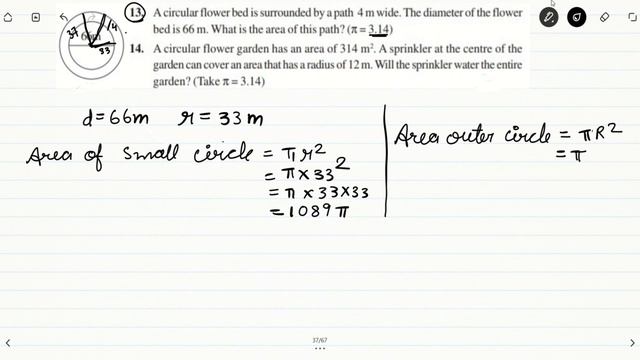 13. A circular flower bed is surrounded by a path 4 m wide. The diameter of the flower
bed is 66 m. What is the area of this path? (π = 3.14)
14. A circular flower garden has an area of 314 m². A sprinkler at the centre of the
garden can cover an area that has a radius of 12 m. Will the sprinkler water the entire
garden? (Take π = 3.14)
37
33
d=66m r = 33 m
Area of small circle = πr²
= π × 33²
= π × 33×33
= 1089 π
Area outer circle = πR²
= π
37/67